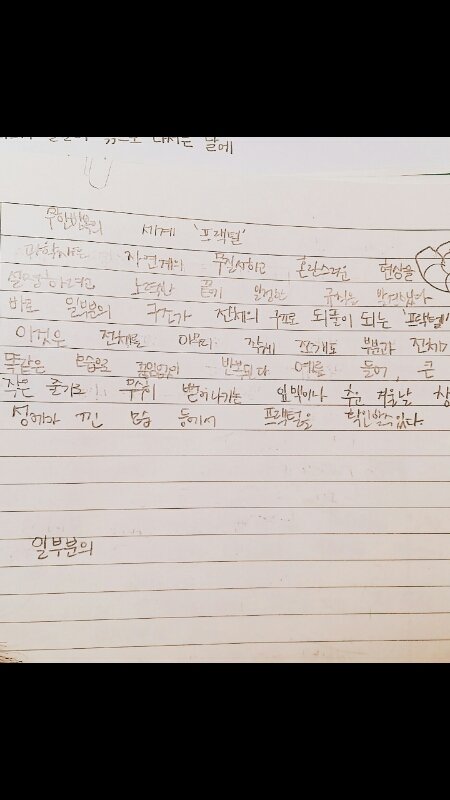 달에
무한반복의 세계 '프랙털'
과학자는 자연계의 무질서하고 혼란스러운 현상을
설명하려고 노력한 끝에 일정한 규칙을 발견했다
바로 일부분의 구조가 전체의 구조로 되풀이 되는 '프랙털'
이것은 전체를 아무리 잘게 쪼개도 부분과 전체가
똑같은 모습으로 끊임없이 반복된다 예를 들어, 큰
작은 줄기로 무수히 뻗어나가는 인맥이나 추운 겨울날 창
성에가 낀 모습 등에서 프랙털을 확인할수있다.
일부분의